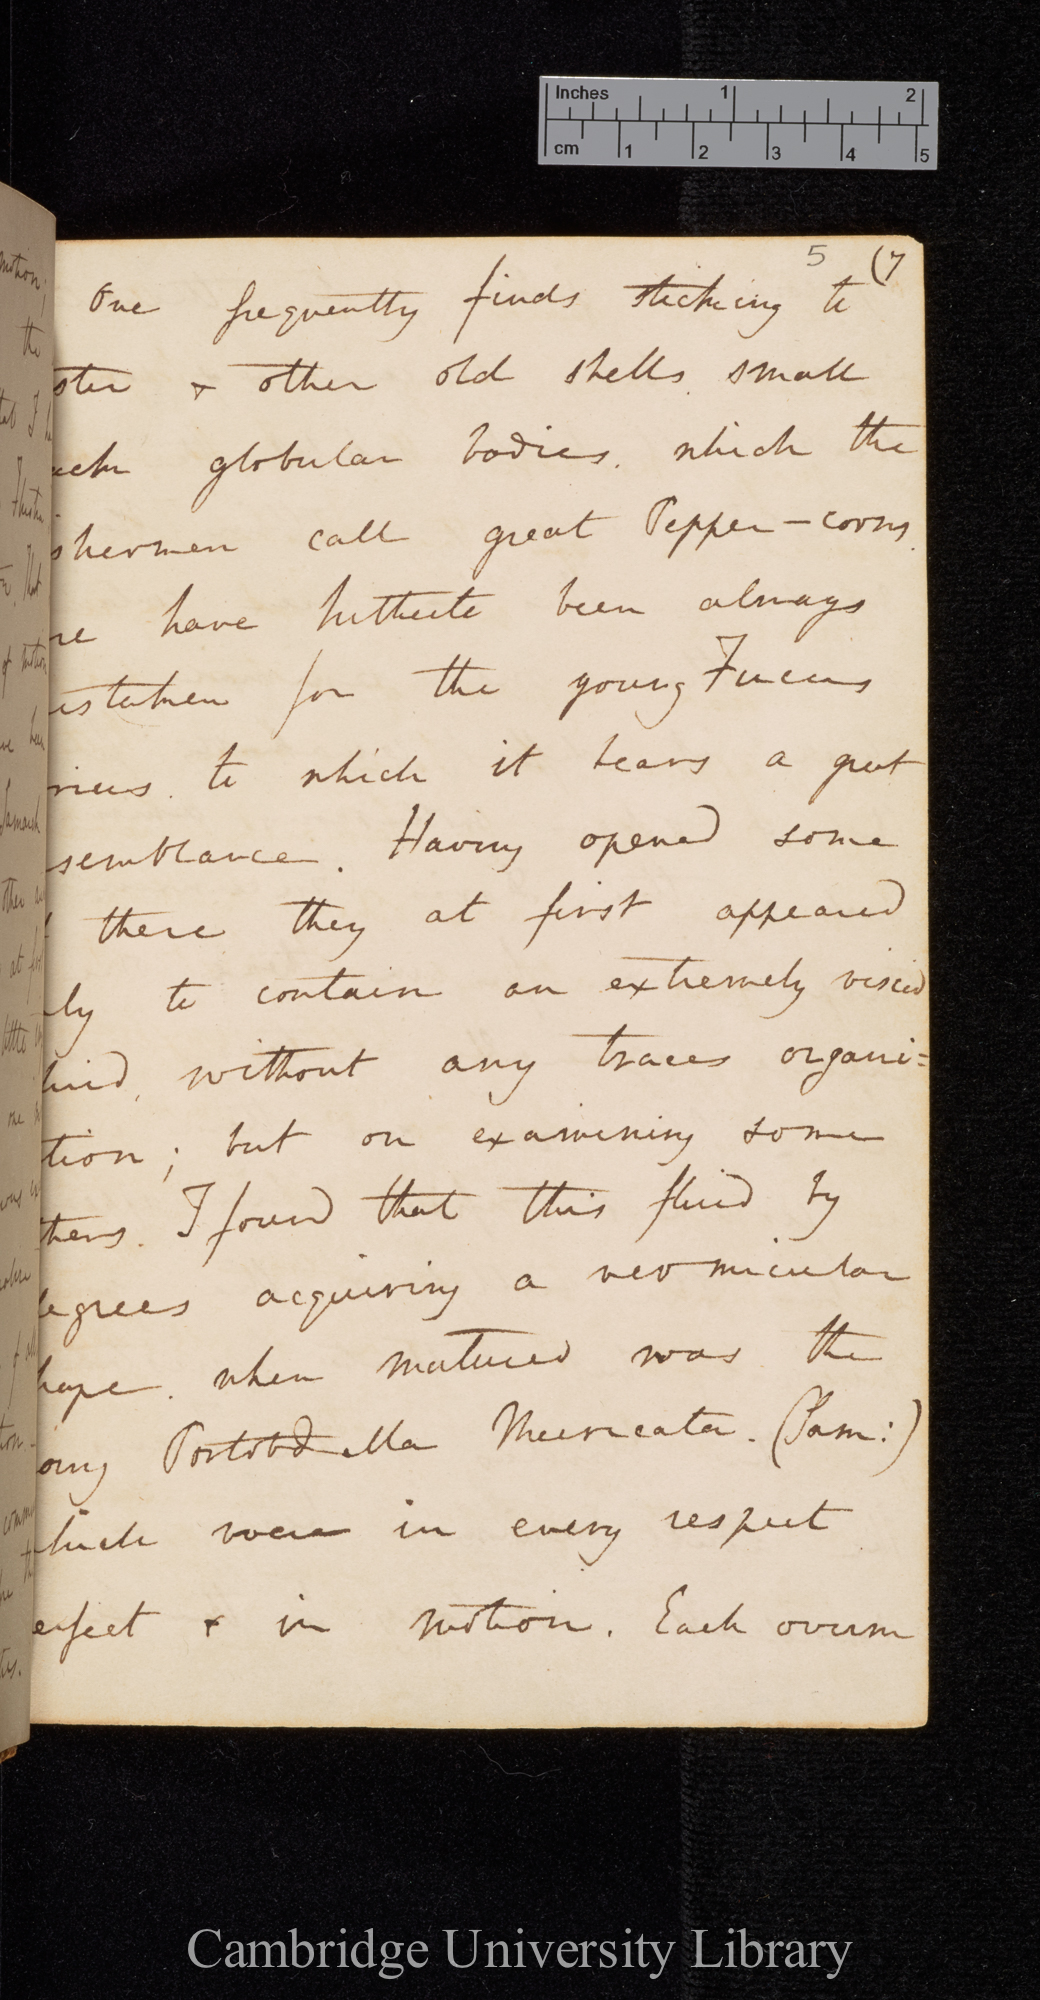 Inches 1 2
cm 1 2 3 4 5
5 (7
One frequently finds sticking to
ster & other old shells, small
ack globular bodies, which the
shermen call great Pepper-corns.
have hitherto been always
istaken for the young Fucus
rieus, to which it bears a great
semblance. Having opened some
these they at first appeared
ly to contain an extremely viscid
luid, without any traces organi=
tion; but on examining some
thers. I found that this fluid by
egrees acquiring a vermicular
hape, when matured was the
oung Muricata. (Lam:)
hich were in every respect
erfect & in motion. Each ovum
Cambridge University Library